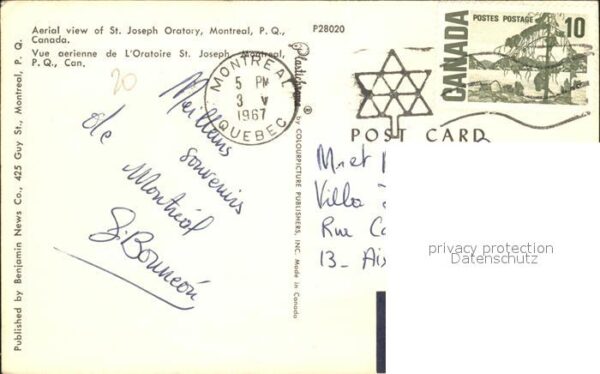 Aerial view of St. Joseph Oratory, Montreal, P. Q.,
Canada.
Vue aerienne de L'Oratoire St. Joseph, Montreal,
P. Q., Can.
P28020
20
Meilleurs
souvenirs
de Montréal
Published by Benjamin News Co., 425 Guy St., Montreal, P. Q.
Plastichrome ® by COLOURPICTURE PUBLISHERS, INC. Made in Canada
MONTREAL
5 PM
3 V
1967
QUEBEC
CANADA
POSTES POSTAGE
10
POST CARD
M et
Villa
Rue
13 - Aix
privacy protection
Datenschutz